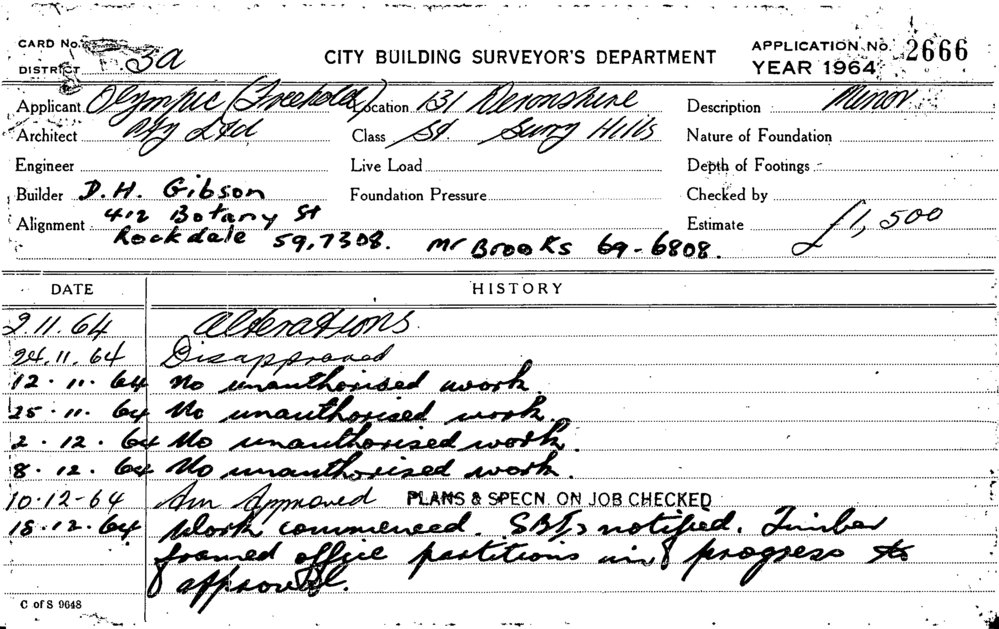 CARD No.
DISTRICT 3a
CITY BUILDING SURVEYOR'S DEPARTMENT
APPLICATION No. 2666
YEAR 1964
Applicant Olympic (Freehold) Location 131 Devonshire Description Minor
Architect Pty Ltd Class St. Surry Hills Nature of Foundation
Engineer Live Load Depth of Footings
Builder D.H. Gibson Foundation Pressure Checked by
Alignment 412 Botany St Estimate £1,500
Rockdale 59,7308. Mr Brooks 69-6808.
DATE HISTORY
2.11.64 Alterations
24.11.64 Disapproved
12.11.64 No unauthorised work.
25.11.64 No unauthorised work.
2.12.64 No unauthorised work.
8.12.64 No unauthorised work.
10.12-64 Am Approved PLANS & SPECN. ON JOB CHECKED
18.12.64 Work commenced. notified. Timber
framed office partitions in progress to
approval.
C of S 9648